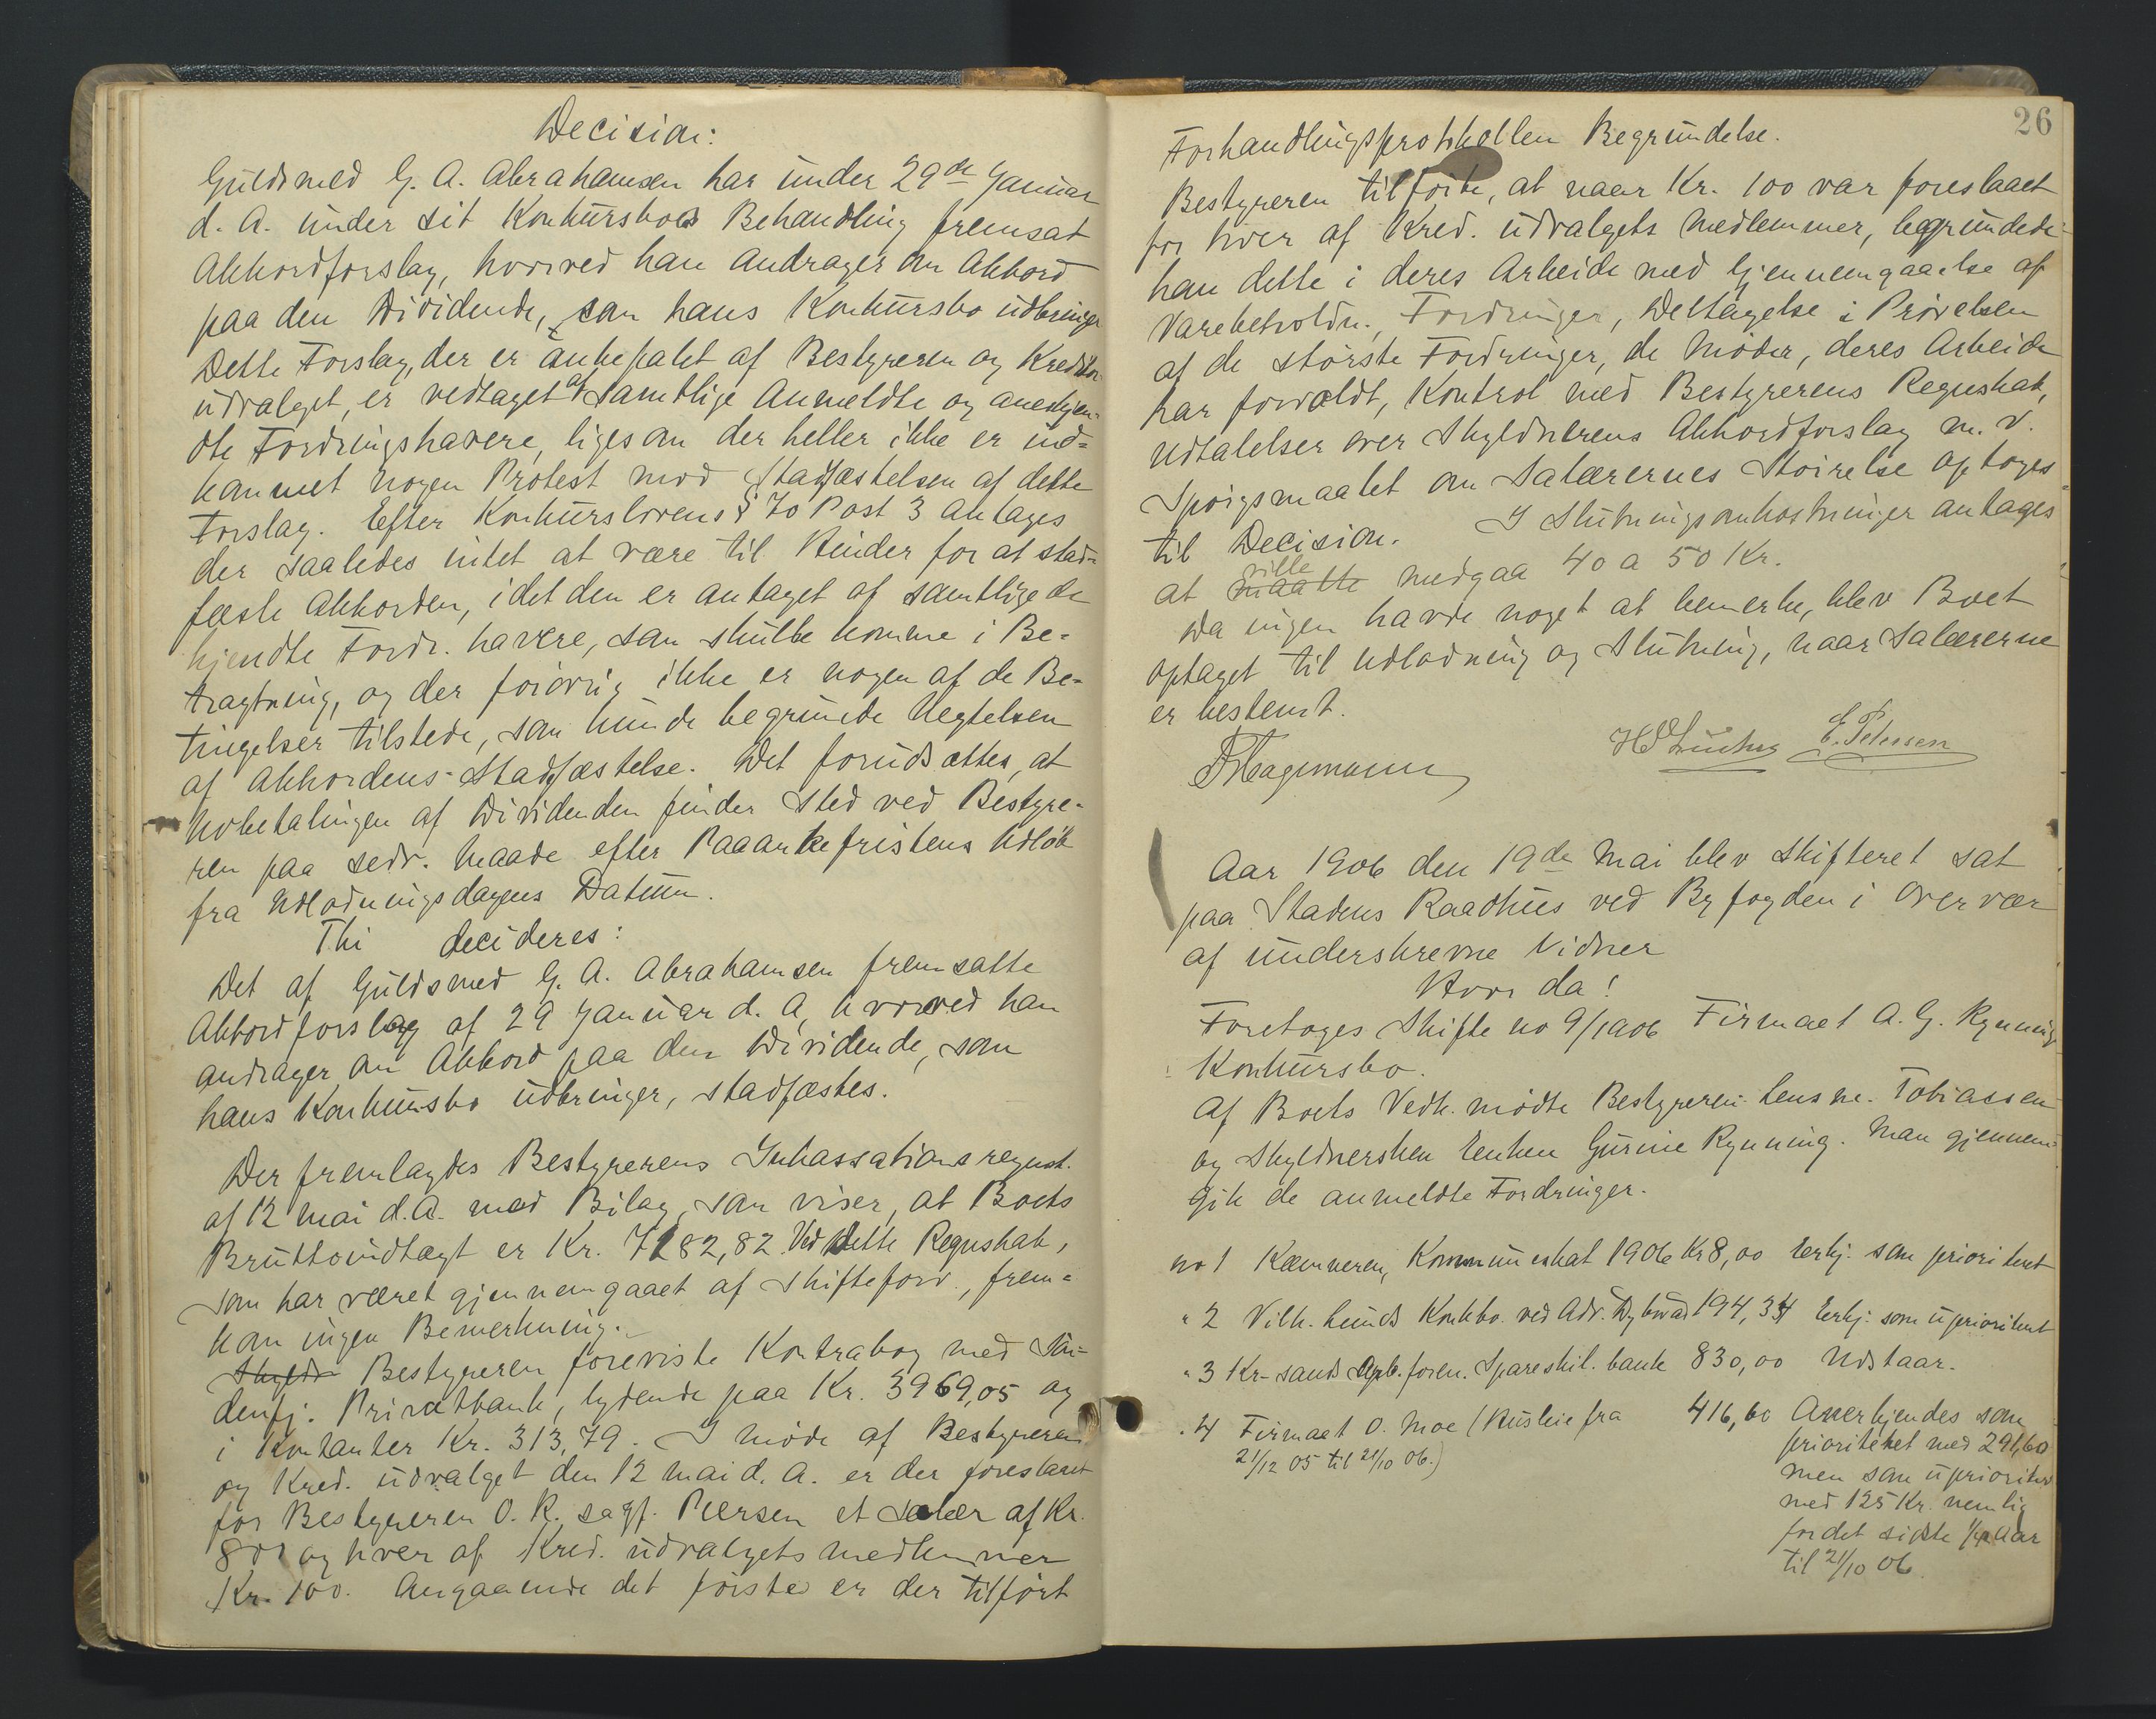 Decision:
Guldsmed G. A. Abrahamsen har under 29de Januar
d. A. under sit Konkursbos Behandling fremsat
Akkordforslag, hvorved han andrager om Akkord
paa den Dividende, som hans Konkursbo udbringer
Dette Forslag, der er anbefalet af Bestyreren og Kreditor-
udvalget, er vedtaget af samtlige anmeldte og anerkjen-
dte Fordringshavere, ligesom der heller ikke er ind-
kommet nogen Protest mod Stadfæstelsen af dette
Forslag. Efter Konkurslovens § 70 Post 3 antages
der saaledes intet at være til Hinder for at stad-
fæste Akkorden, idet den er antaget af samtlige de
kjendte Fordr. havere, som skulle komme i Be-
tragtning, og der forøvrig ikke er nogen af de Be-
tingelser tilstede, som kunde begrunde Negtelsen
af Akkordens Stadfæstelse. Det forudsættes, at
Udbetalingen af Dividenden finder Sted ved Bestyre-
ren paa sedv. Maade efter Paaankefristens Udløb
fra Udlodningsdagens Datum.
Thi decideres:
Det af Guldsmed G. A. Abrahamsen fremsatte
Akkordforslag af 29 Januar d. A, hvorved han
andrager om Akkord paa den Dividende, som
hans Konkursbo udbringer, stadfæstes.
Der fremlagdes Bestyrerens Inkassationsregnsk.
af 12 mai d.A. med Bilag, som viser, at Boets
Bruttoindtægt er Kr. 7182,82. Ved dette Regnskab,
som har været gjennemgaaet af Skifteforv., frem-
kom ingen Bemerkning.
Skyldn Bestyreren foreviste Kontrabog med Søn-
denfj. Privatbank, lydende paa Kr. 3969,05 og
i Kontanter Kr. 313,79. I møde af Bestyreren
og Kred. udvalget den 12 mai d. A. er der foreslaaet
for Bestyreren O. R. sagf. Peersen et Salær af Kr.
800 og hver af Kred. udvalgets medlemmer
Kr. 100. Angaaende det første er der tilført
26
Forhandlingsprotokollen Begrundelse.
Bestyreren tilførte, at naar Kr. 100 var foreslaaet
for hver af Kred. udvalgets Medlemmer, begrundede
han dette i deres Arbeide med Gjennemgaaelse af
Varebeholdn., Fordringer, Deltagelse i Prøvelsen
af de største Fordringer, de Møder, deres Arbeide
har forvoldt, Kontrol med Bestyrerens Regnskab,
Udtalelser over Skyldnerens Akkordforslag m. v.
Spørgsmaalet om Salærernes Størrelse optoges
til Decision. I Slutningsomkostninger antages
at maatte ville medgaa 40 a 50 Kr.
Da ingen havde noget at bemerke, blev Boet
optaget til Udlodning og Slutning, naar Salærerne
er bestemt.
E. Petersen
Aar 1906 den 19de Mai blev Skifteret sat
paa Stadens Raadhus ved Byfogden i Overvær
af underskrevne Vidner
Hvor da!
Foretoges Skifte no 9/1906 Firmaet A. G. Rynning
Konkursbo.
Af Boets Vedk. mødte Bestyreren Lensm. Tobiassen
og Skyldnersken Enken Gurine Rynning. Man gjennem-
gik de anmeldte Fordringer.
no 1 Kæmneren, Kommuneskat 1906 Kr 8,00 Erkj. som prioritert
" 2 Vilh. Lunds Konkbo. ved Adv. Dybwad 194,34 Erkj. som uprioritert
" 3 Kr-sands Arb. foren. Spareskil. bank 830,00 Udstaar.
" 4 Firmaet O. Moe (Husleie fra 416,60 Anerkjendes som
21/12 05 til 21/10 06.)
prioritetet med 291,60
men som uprioritert
med 125 Kr. nemlig
for det sidste 1/4 Aar
til 21/10 06.